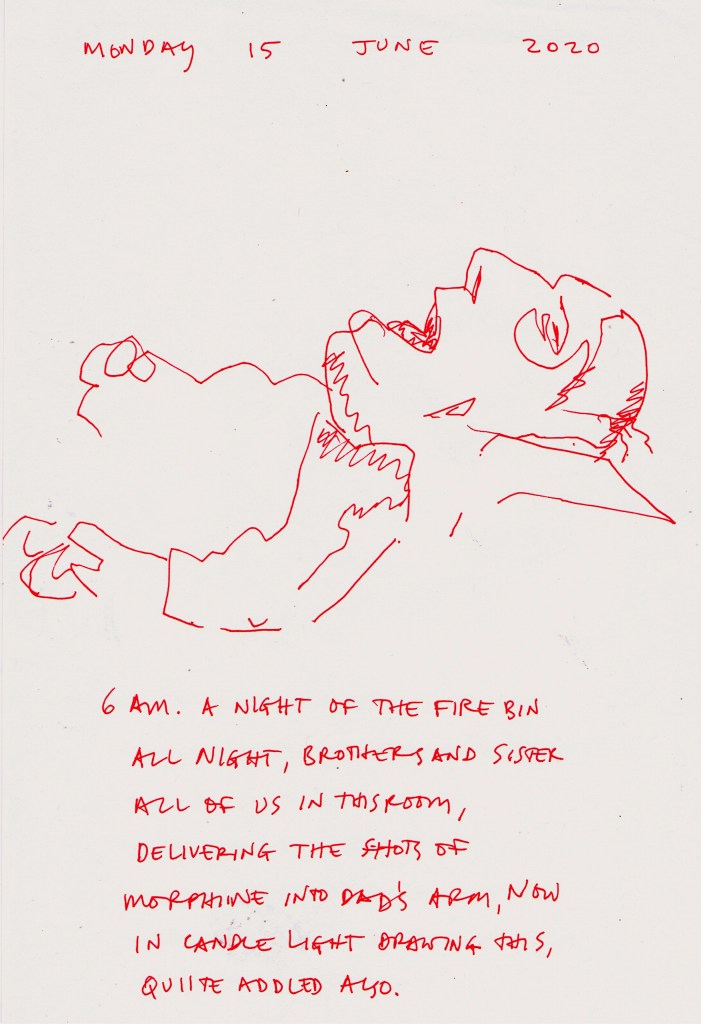 MONDAY 15 JUNE 2020
6 AM. A NIGHT OF THE FIRE BIN
ALL NIGHT, BROTHERS AND SISTER
ALL OF US IN THIS ROOM,
DELIVERING THE SHOTS OF
MORPHINE INTO DAD'S ARM, NOW
IN CANDLE LIGHT DRAWING THIS,
QUIITE ADDLED ALSO.